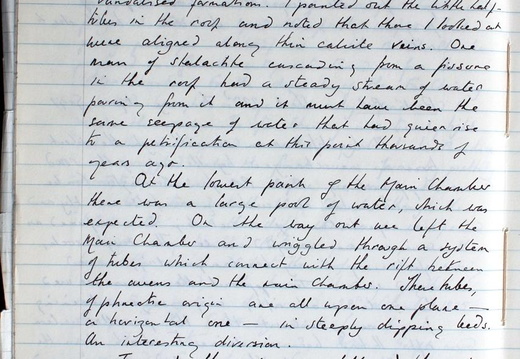 vandalised formation. I pointed out the little half-
tubes in the roof and noted that those I looked at
were aligned along thin calcite veins. One
mass of stalactite cascading from a fissure
in the roof had a steady stream of water
pouring from it and it must have been the
same seepage of water that had given rise
to a petrification at this point thousands of
years ago.
At the lowest point of the Main Chamber
there was a large pool of water, which was
expected. On the way out we left the
Main Chamber and wriggled through a system
of tubes which connect with the rift between
the and the main chamber. These tubes,
of phreatic origin are all upon one plane —
a horizontal one — in steeply dipping beds.
An interesting diversion.